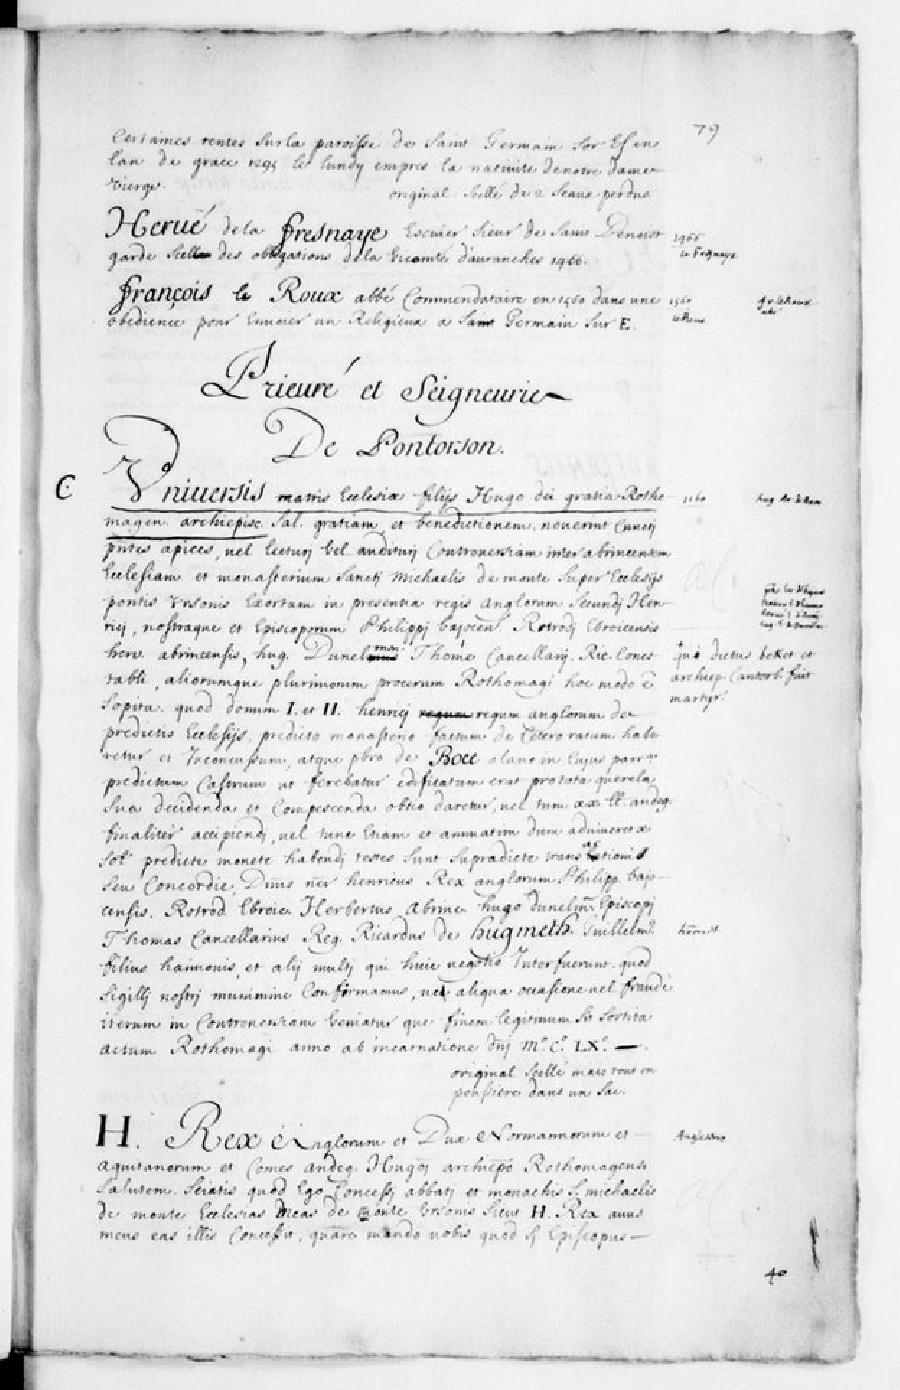 79
Certaines rentes sur la paroisse de Saint Germain sor Ef en
lan de grace 1295 le lundy empres la nativite de notre dame
vierge.
original scellé de 2 seaux perdus
Herué de la fresnaye Escuier sieur de Saint Benoist
garde des obligations de la Vicomté dauranches 1466.
1466
la Fresnaye
françois le Roux abbé Commendataire en 1560 dans une
obedience pour Enuoier un Religieux a Saint Germain sur E.
1560
le Roux
fr. le Roux
abé
Prieuré et Seigneurie
De Pontorson.
C
Vniuersis matris Ecclesiæ filijs Hugo dei gratia Rotho-
magen. archiepisc. sal. gratiam et benedictionem. nouerint Cuncti
pntes apices, vel lecturj vel auditurj Controuersiam inter abrincensem
Ecclesiam et monasterium Sanctj Michaelis de monte super Ecclesijs
pontis Vrsonis Exortam in presentia regis anglorum secundj Hen-
ricj, nostraque et Episcoporum Philippj bajocens. Rotrodj Ebroicensis
herv. abrincensis, hug. Dunelmensj Thome Cancellarij. Ric. Cones-
tabli, aliorumque plurimorum procerum Rothomagi hoc modo e
sopita. quod donum I. et II. henricj regum anglorum de
predictis Ecclesijs, predicto monasterio factum de Cetero ratum habe-
retur et Inconcussum, atque pbro de Boce olano in Cujus parr
predictum Castrum ut ferebatur edificatum erat pro tata querela
sua decidenda et Compescenda obtio daretur, vel tum xx ll. andeg.
finaliter accipiendj, vel tunc Etiam et annuatim dum adviueret x
sol predicte monete habendj testes sunt supradicte
seu Concordie, Dnus nr henricus Rex anglorum Philipp. bajo-
censis. Rotrod. Ebroic. Herbertus Abrinc. hugo Dunelm. Episcopj
Thomas Cancellarius Reg. Ricardus de hugmeth. Guillelm.
filius haimonis, et alij multj qui huic negotio Interfuerunt. quod
sigillj nostrj munimine Confirmamus, ne aliqua occasione vel fraude
iterum in Controuersiam Veniatur que finem legitimum est sortita
actum Rothomagi anno ab incarnatione dnj M.º C.º LX.º
original scellé mais tout en
poussiere dans un sac.
1160
hug. de
que dictus beket et
archiep. Cantorb. fuit
martyr.
H. Rex Anglorum et Dux Normannorum et
Aquitanorum et Comes andeg. Hugoj archiepo Rothomagensi
salutem. Sciatis quod Ego Concessj abbatj et monachis S. michaelis
de monte Ecclesias meas de ponte Vrsonis sicut H. Rex auus
meus eas illis Concessit, quare mando vobis quod sj Episcopus
40